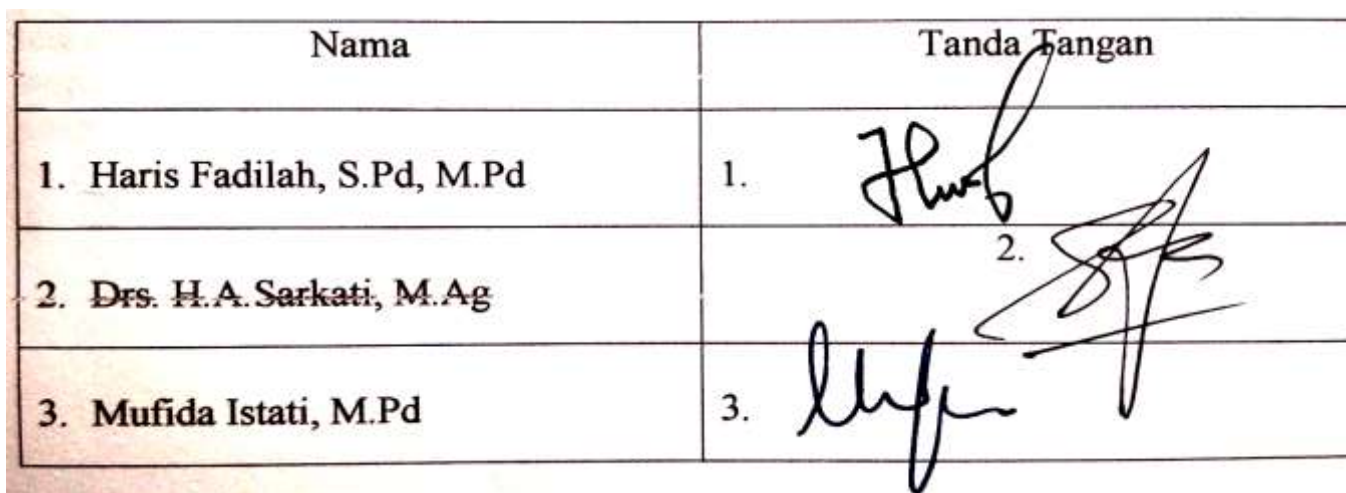 Nama Tanda Tangan
1. Haris Fadilah, S.Pd, M.Pd 1.
2. Drs. H.A. Sarkati, M.Ag 2.
3. Mufida Istati, M.Pd 3.